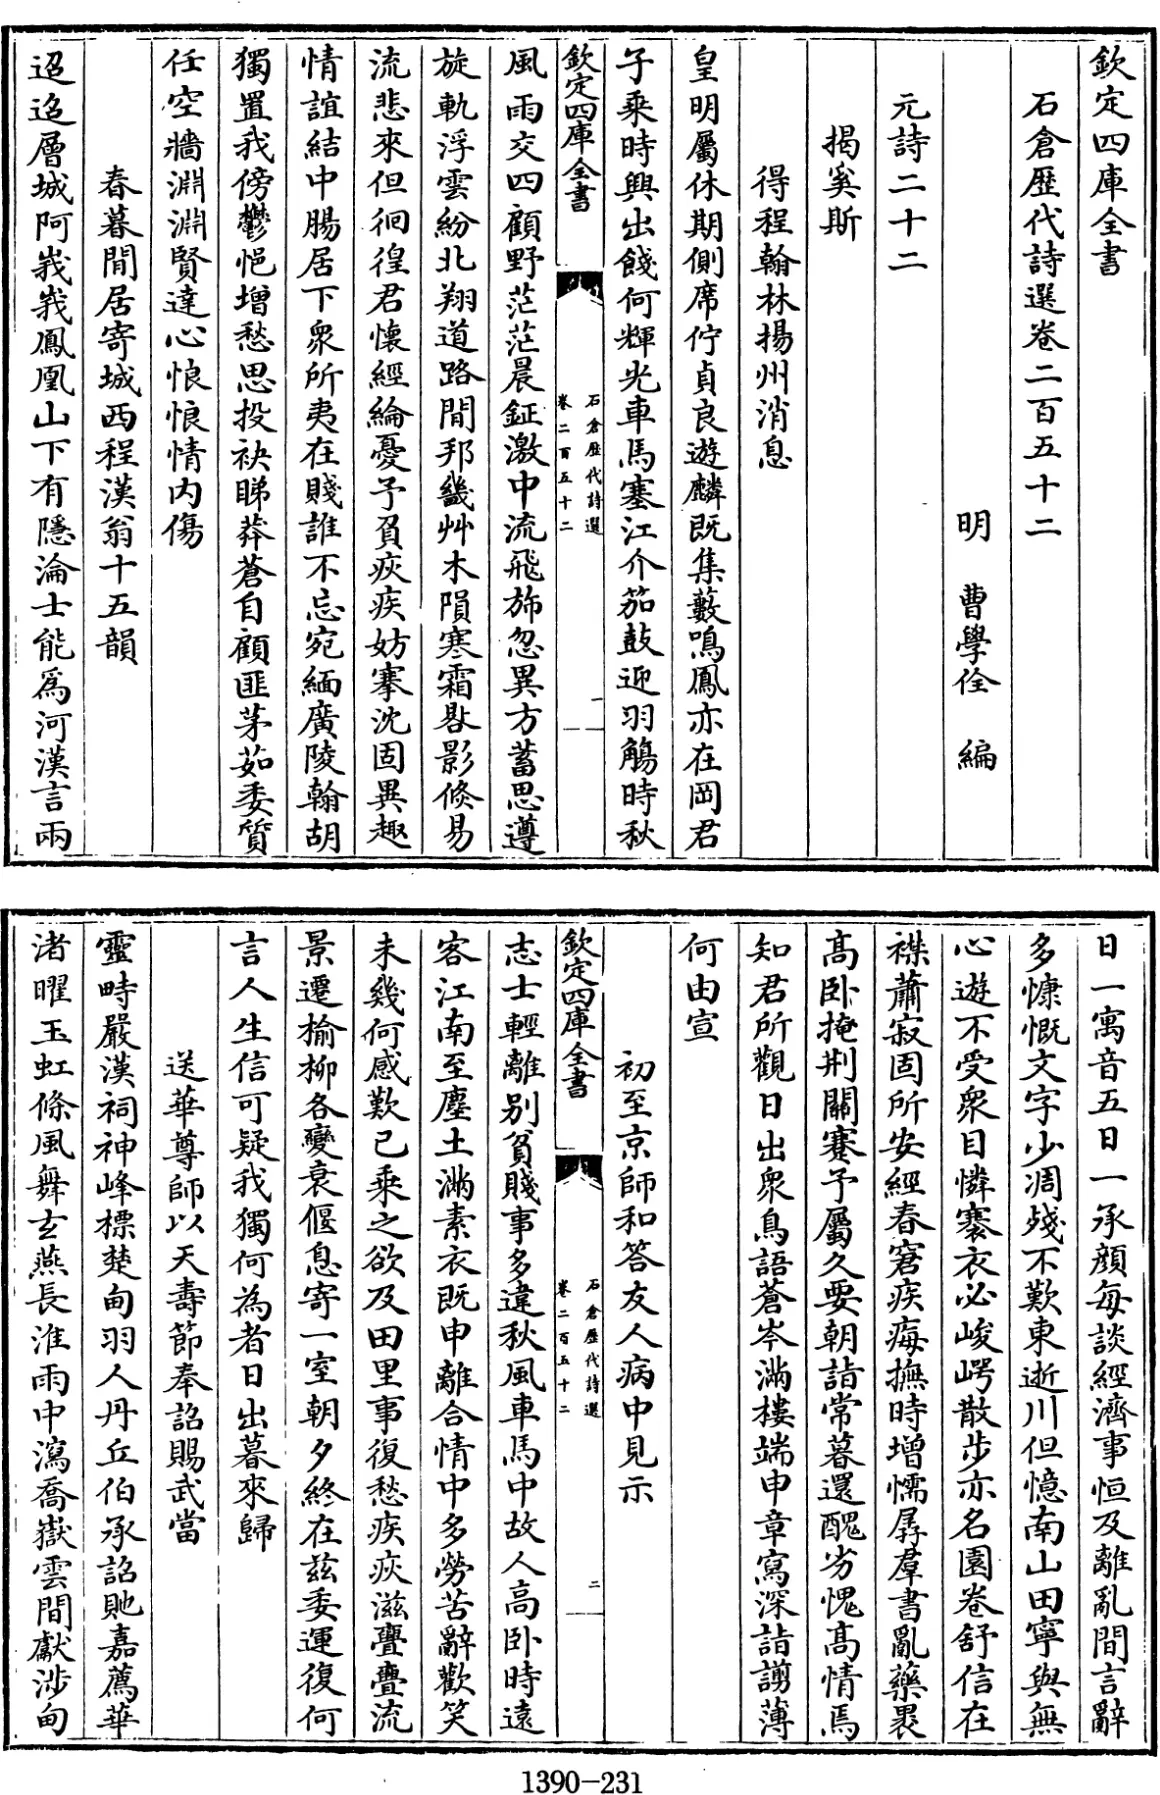 欽定四庫全書
石倉歴代詩選卷二百五十二
明　曹學佺　編
元詩二十二
揭奚斯
得程翰林揚州消息
皇明屬休期側席佇貞良遊麟既集藪鳴鳳亦在岡君
子乘時興出餞何輝光車馬塞江介笳鼓迎羽觴時秋
欽定四庫全書
石倉歴代詩選
卷二百五十二
一
風雨交四顧野茫茫晨鉦激中流飛斾忽異方蓄思遵
旋軌浮雲紛北翔道路間邦畿艸木隕寒霜晷影倐易
流悲來但徊徨君懷經綸憂予負疾疚妨搴沈固異趣
情誼結中腸居下衆所夷在賤誰不忘宛緬廣陵翰胡
獨置我傍鬱悒增愁思投袂睇莽蒼自顧匪茅茹委質
任空牆淵淵賢達心悢悢情内傷
春暮閒居寄城西程漢翁十五韻
迢迢層城阿峩峩鳳凰山下有隱淪士能爲河漢言兩
日一寓音五日一承顔每談經濟事恒及離亂間言辭
多慷慨文字少凋殘不歎東逝川但憶南山田寧與無
心遊不受衆目憐褰衣必峻崿散步亦名園卷舒信在
襟蕭寂固所安經春窘疾痗撫時增懦孱羣書亂藥裹
髙卧掩荆關蹇予屬久要朝詣常暮還醜劣愧髙情焉
知君所觀日出衆鳥語蒼岑滿樓端申章寫深詣謭薄
何由宣
初至京師和答友人病中見示
欽定四庫全書
石倉歴代詩選
卷二百五十二
二
志士輕離别貧賤事多違秋風車馬中故人高卧時遠
客江南至塵土滿素衣既申離合情中多勞苦辭歡笑
未幾何感歎已乘之欲及田里事復愁疾疚滋亹亹流
景遷榆柳各變衰偃息寄一室朝夕終在兹委運復何
言人生信可疑我獨何為者日出暮來歸
送華尊師以天壽節奉詔賜武當
靈時嚴漢祠神峰標楚甸羽人丹丘伯承詔貤嘉薦華
渚曜玉虹條風舞玄燕長淮雨中瀉喬嶽雲間獻涉甸
1390-231